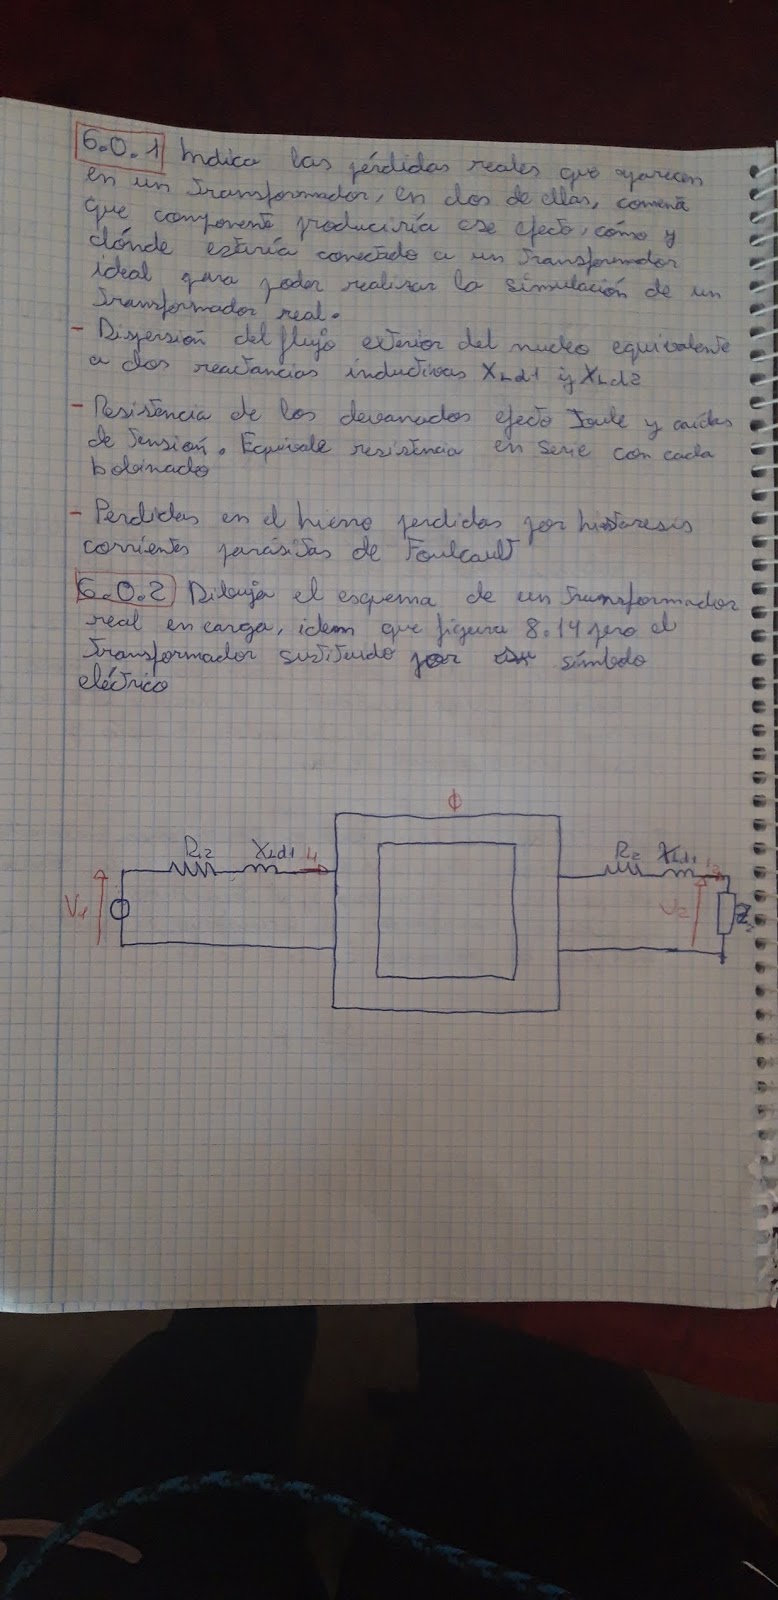 6.0.1 Indica las pérdidas reales que aparecen
en un transformador, en dos de ellas, comenta
que componente produciría ese efecto, cómo y
dónde estaría conectado a un transformador
ideal para poder realizar la simulación de un
transformador real.
- Dispersión del flujo exterior del nucleo equivalente
a dos reactancias inductivas XLd1 y XLd2
- Resistencia de los devanados efecto Joule y caídas
de tensión. Equivale resistencia en serie con cada
bobinado
- Perdidas en el hierro perdidas por histeresis
corrientes parásitas de Foulcault
6.0.2 Dibuja el esquema de un transformador
real en carga, idem que figura 8.14 pero el
transformador sustituido por su símbolo
eléctrico
Φ
R12 XLd1 I1 R2 XLd1 I2
V1 V2 Z2